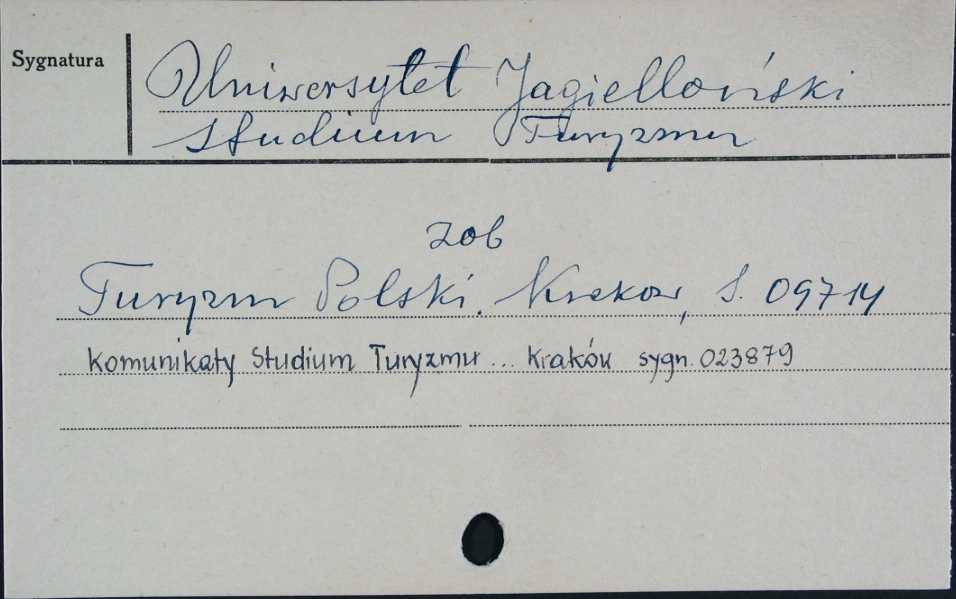 Sygnatura
Uniwersytet Jagielloński
Studium Turyzmu
zob
Turyzm Polski. Krakow, S. 09714
Komunikaty Studium Turyzmu ... Kraków sygn. 023879